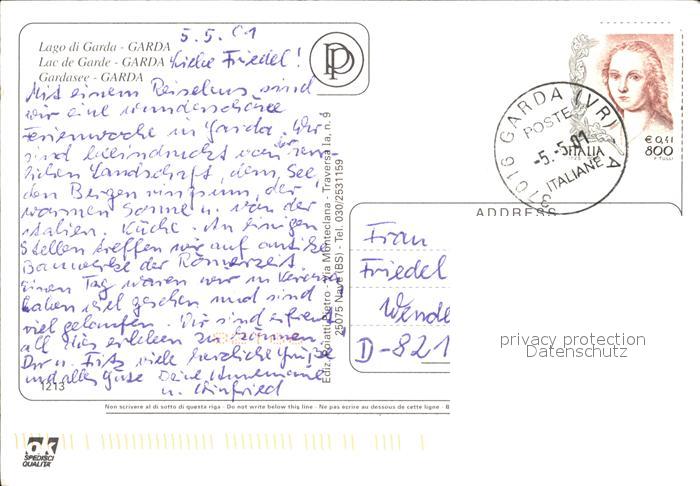 5.5.01
Lago di Garda - GARDA
Lac de Garde - GARDA
Gardasee - GARDA
Liebe Friedel!
Mit einem Reisebus sind
wir eine wunderschöne
Ferienwoche in Garda. Wir
sind beeindruckt von der herr-
lichen Landschaft, dem See,
den Bergen ringsum, der
warmen Sonne u. von der
italien. Küche. An einigen
Stellen treffen wir auf antike
Bauwerke der Römerzeit.
Einen Tag waren wir in Verona
haben viel gesehen und sind
viel gelaufen. Wir sind erfreut
all dies erleben zu können.
Dir u. Fritz viele herzliche Grüße
und alles Gute Deine
u. Winfried
1213
PP
n. 9
25075 Nave (BS) - Tel. 030/2531159
37016 GARDA (VR)
POSTE
-5.-5.01
ITALIANE
€ 0,41
800
ITALIA
ADDRESS
Frau
Friedel
Wende
D-821
privacy protection
Datenschutz
Non scrivere al di sotto di questa riga - Do not write below this line - Ne pas écrire au dessous de cette ligne - B
ok
SPEDISCI
QUALITA'